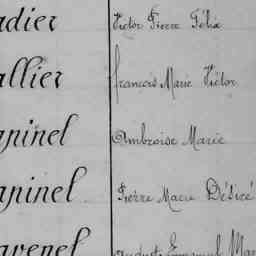 adier Victor Pierre Félix
allier francois Marie Victor
apinel Ambroise Marie
apinel Pierre Marie Désiré
avenel Auguste Emmanuel Mar